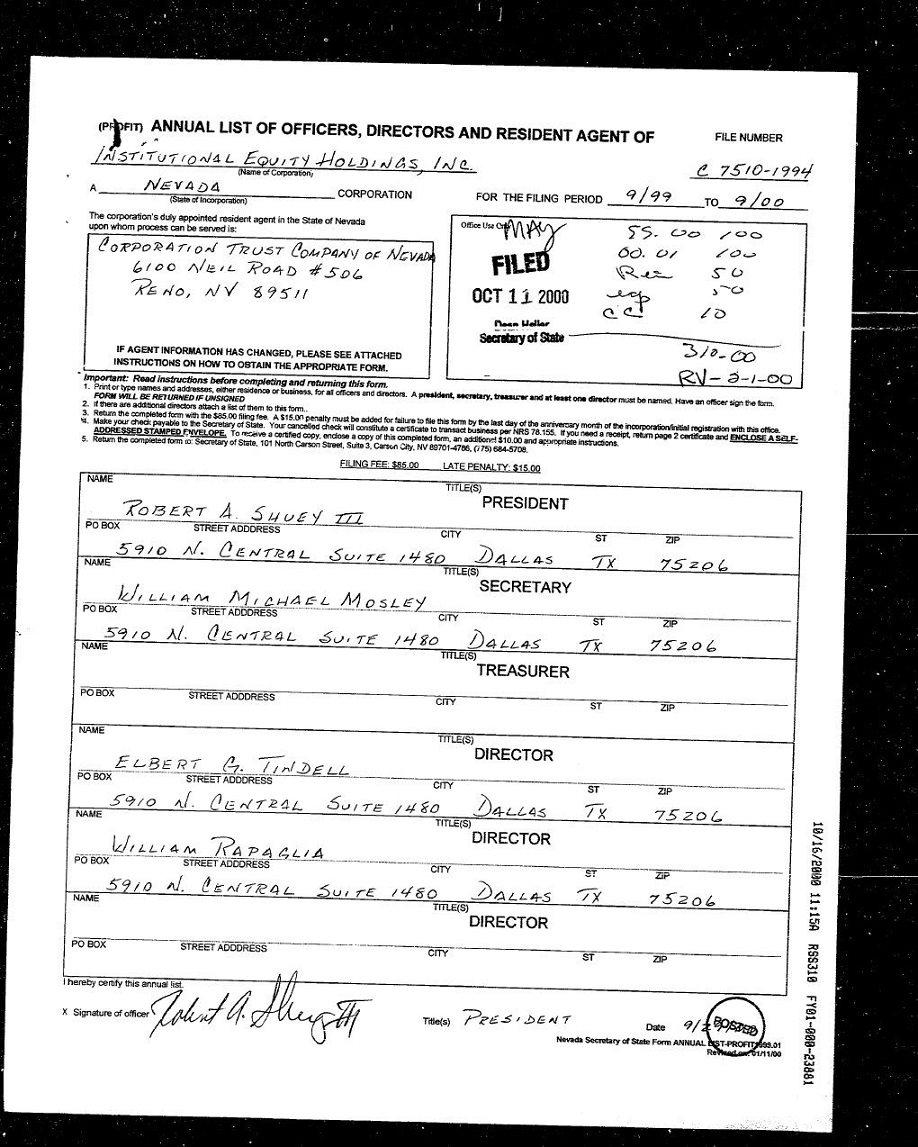 (PROFIT) ANNUAL LIST OF OFFICERS, DIRECTORS AND RESIDENT AGENT OF
FILE NUMBER
INSTITUTIONAL EQUITY HOLDINGS, INC.
(Name of Corporation)
C 7510-1994
A NEVADA CORPORATION
(State of Incorporation)
FOR THE FILING PERIOD 9/99 TO 9/00
The corporation's duly appointed resident agent in the State of Nevada
upon whom process can be served is:
CORPORATION TRUST COMPANY OF NEVADA
6100 NEIL ROAD #506
RENO, NV 89511
IF AGENT INFORMATION HAS CHANGED, PLEASE SEE ATTACHED
INSTRUCTIONS ON HOW TO OBTAIN THE APPROPRIATE FORM.
Office Use Only
MAY
FILED
OCT 11 2000
Dean Heller
Secretary of State
55.00 100
00.01 100
Rei 50
exp 50
CC 10
310-00
RV-2-1-00
Important: Read instructions before completing and returning this form.
1. Print or type names and addresses, either residence or business, for all officers and directors. A president, secretary, treasurer and at least one director must be named. Have an officer sign the form.
FORM WILL BE RETURNED IF UNSIGNED
2. If there are additional directors attach a list of them to this form..
3. Return the completed form with the $85.00 filing fee. A $15.00 penalty must be added for failure to file this form by the last day of the anniversary month of the incorporation/initial registration with this office.
4. Make your check payable to the Secretary of State. Your cancelled check will constitute a certificate to transact business per NRS 78.155. If you need a receipt, return page 2 certificate and ENCLOSE A SELF-
ADDRESSED STAMPED ENVELOPE. To receive a certified copy, enclose a copy of this completed form, an additional $10.00 and appropriate instructions.
5. Return the completed form to: Secretary of State, 101 North Carson Street, Suite 3, Carson City, NV 89701-4786, (775) 684-5708.
FILING FEE: $85.00 LATE PENALTY: $15.00
NAME TITLE(S)
PRESIDENT
ROBERT A. SHUEY III
PO BOX STREET ADDDRESS CITY ST ZIP
5910 N. CENTRAL SUITE 1480 DALLAS TX 75206
NAME TITLE(S)
SECRETARY
WILLIAM MICHAEL MOSLEY
PO BOX STREET ADDDRESS CITY ST ZIP
5910 N. CENTRAL SUITE 1480 DALLAS TX 75206
NAME TITLE(S)
TREASURER
PO BOX STREET ADDDRESS CITY ST ZIP
NAME TITLE(S)
DIRECTOR
ELBERT G. TINDELL
PO BOX STREET ADDDRESS CITY ST ZIP
5910 N. CENTRAL SUITE 1480 DALLAS TX 75206
NAME TITLE(S)
DIRECTOR
WILLIAM RAPAGLIA
PO BOX STREET ADDDRESS CITY ST ZIP
5910 N. CENTRAL SUITE 1480 DALLAS TX 75206
NAME TITLE(S)
DIRECTOR
PO BOX STREET ADDDRESS CITY ST ZIP
I hereby certify this annual list.
X Signature of officer Robert A. Shuey III Title(s) PRESIDENT Date 9/2
POSTED
Nevada Secretary of State Form ANNUAL LIST-PROFIT1999.01
Revised on: 01/11/00
10/16/2000 11:15A RSS310 FY01-000-23881